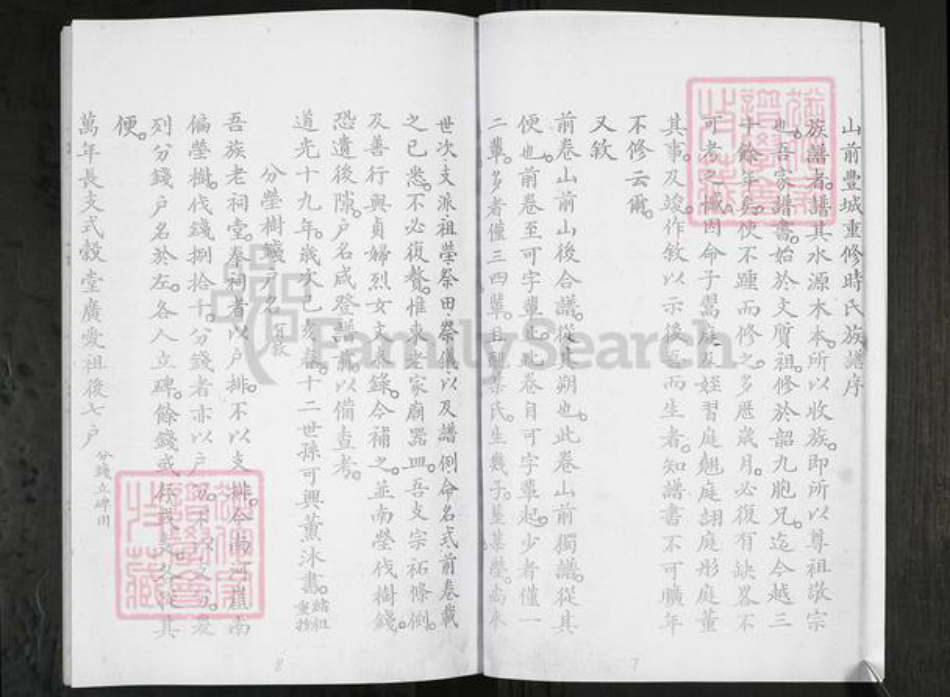 山前豐城重修時氏族譜序
族譜者譜其水源木本。所以收族。即所以尊祖敬宗
也。吾家譜書。始於文質祖。修於韶九胞兄。迄今越三
十餘年矣。使不踵而修之。多歷歲月。必復有缺畧不
可考之憾。因命子暠庭及姪習庭翹庭詡庭彤庭董
其事。及竣。作敘以示後。而生者知譜書不可曠年
不修云爾。
又敘
前卷山前山後合譜。從其朔也。此卷山前獨譜。從其
便也。前卷至可字輩止。此卷自可字輩起。少者僅一
二輩。多者僅三四輩。且配某氏。生幾子。葬某塋。尚未
世次支派祖塋祭田祭儀以及譜例命名式前卷載
之已悉。不必復贅。惟東老家廟器皿。吾支宗祏條例。
及善行與貞婦烈女文未錄。今補之。並南塋伐樹錢。
恐遺後隙。戶名咸登譜藏。以備查考。
道光十九年。歲次己亥春。十二世孫可興薰沐書。緒祖重抄
分塋樹錢戶名 有敘
吾族老祠堂。奉祠者以戶排。不以支排。今南河崖南
偏塋樹。伐錢捌拾千。分錢者亦以戶分。不以支分。爰
列分錢戶名於左。各人立碑。餘錢或存或支。各從其
便。
萬年長支式穀堂廣愛祖後七戶 分錢立碑用
7
8
FamilySearch